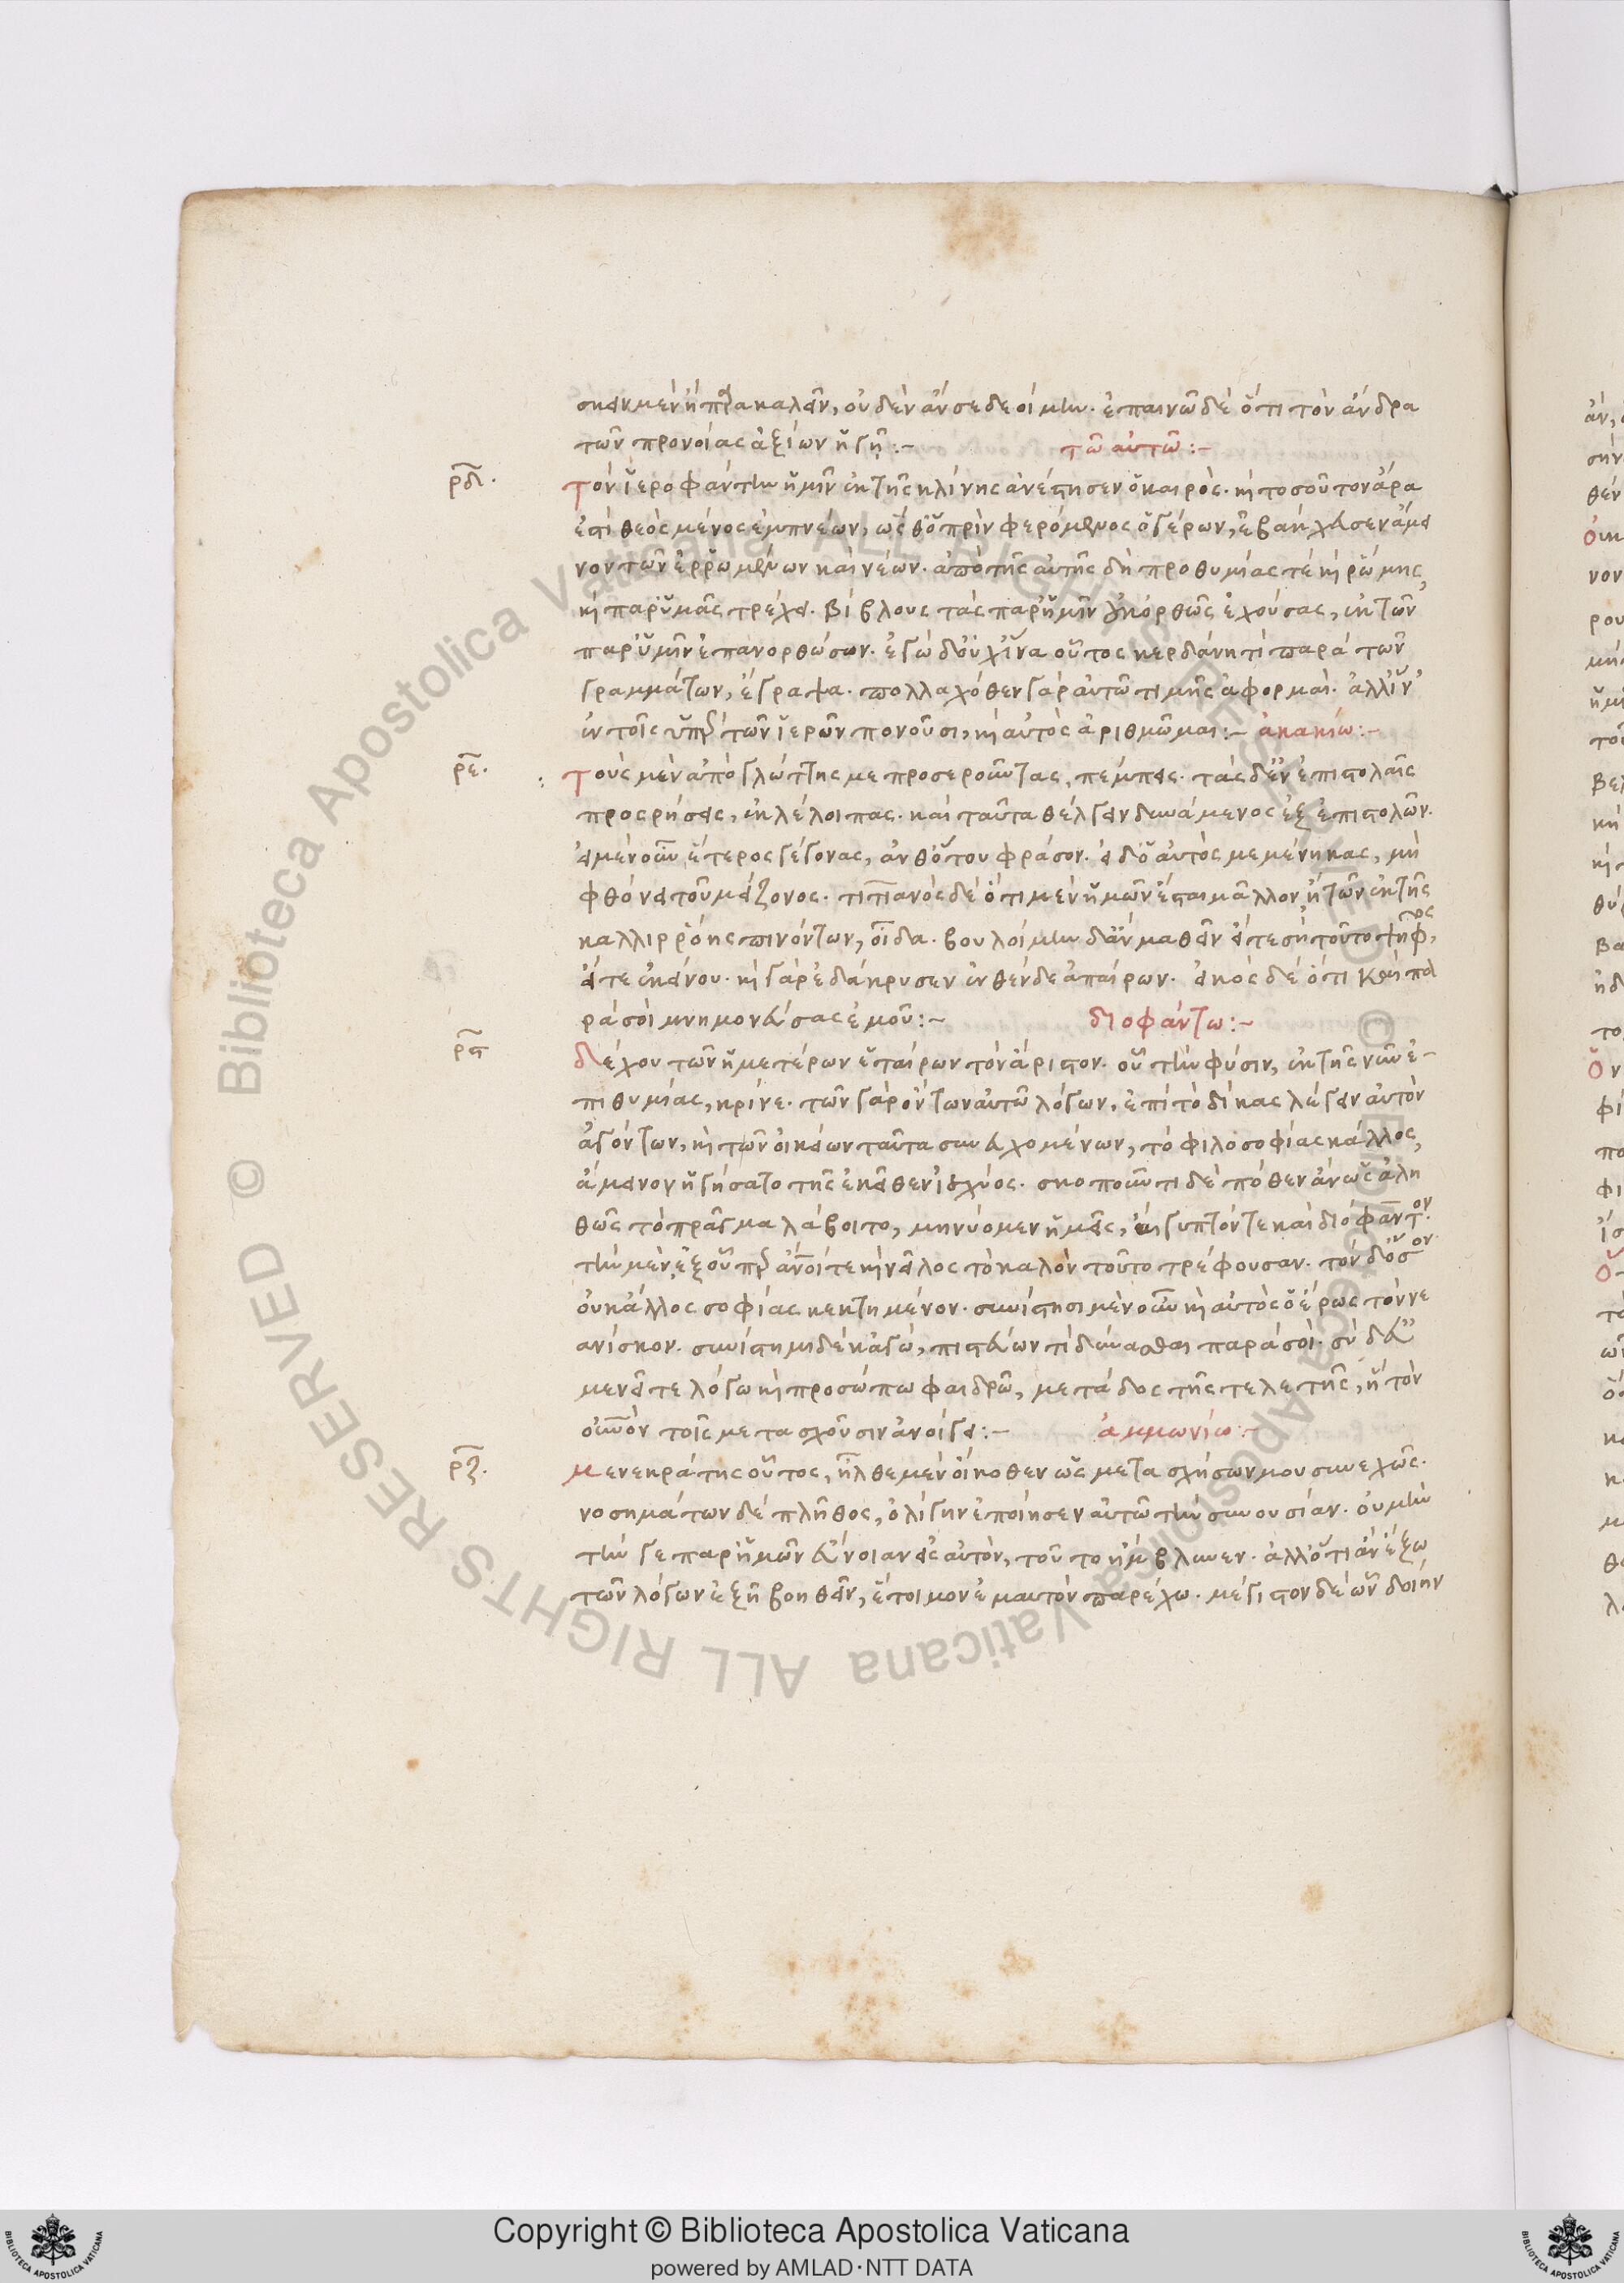 σκειν μὲν ἢ παρακαλεῖν, οὐδὲν ἂν σε δεοίμην. ἐπαινῶ δὲ ὅτι τὸν ἄνδρα
τῶν προνοίας ἀξίων ἡγῇ :~ τῶ αὐτῶ :~
ρδ.
τὸν ἱεροφάντην ἡμῖν ἐκ τῆς κλίνης ἀνέστησεν ὁ καιρὸς. καὶ τοσοῦτον ἄρα
ἐστὶ θεὸς μένος ἐμπνέων, ὥσθ' ὁ πρὶν φερόμενος ὁ γέρων, ἐβάδιζεν ἄμει
νον τῶν ἐρρωμένων καὶ νέων. ἀπὸ τῆς αὐτῆς δὴ προθυμίας τὲ καὶ ῥώμης,
καὶ παρ' ὑμᾶς τρέχει. βίβλους τὰς παρ' ἡμῖν οὐκ ὀρθῶς ἐχούσας, ἐκ τῶν
παρ' ὑμῖν ἐπανορθώσων. ἐγὼ δ' οὐχ ἵνα οὗτος κερδάνη τὶ παρὰ τῶν
γραμμάτων, ἔγραψα. πολλαχόθεν γὰρ αὐτῶ τιμῆς ἀφορμαὶ. ἀλλ' ἵν'
ἐν τοῖς ὑπὲρ τῶν ἱερῶν πονοῦσι, καὶ αὐτὸς ἀριθμῶμαι :~ ἀκακίω :~
ρε.
τοὺς μὲν ἀπὸ γλώττης με προσεροῦντας, πέμπεις. τὰς δ' ἐν ἐπιστολαῖς
προσρήσεις, ἐκλέλοιπας. καὶ ταῦτα θέλγειν δυνάμενος ἐξ ἐπιστολῶν.
εἰ μὲν οὖν ἕτερος γέγονας, ἀνθ' ὅτου φράσον. εἰ δ' ὁ αὐτὸς μεμένηκας, μὴ
φθόνει τοῦ μείζονος. τιτιανὸς δὲ ὅτι μὲν ἡμῶν ἔσται μᾶλλον ἢ τῶν ἐκ τῆς
καλλιρρόης πινόντων, οἶδα. βουλοίμην δ' ἂν μαθεῖν εἴτε σὴ τοῦτο ψῆφος,
εἴτε ἐκείνου. καὶ γὰρ ἐδάκρυσεν ἐνθένδε ἀπαίρων. εἰκὸς δὲ ὅτι καὶ πα
ρὰ σοὶ μνημονεύσας ἐμοῦ :~ διοφάντω :~
ρς
δέχου τῶν ἡμετέρων ἑταίρων τὸν ἄριστον. οὗ τὴν φύσιν, ἐκ τῆς νῦν ἐ-
πιθυμίας, κρίνε. τῶν γὰρ ὄντων αὐτῶ λόγων, ἐπὶ τὸ δίκας λέγειν αὐτὸν
ἀγόντων, καὶ τῶν οἰκείων ταῦτα συνευχομένων, τὸ φιλοσοφίας κάλλος,
ἄμεινον ἡγήσατο τῆς ἐκεῖθεν ἰσχύος. σκοποῦντι δὲ πόθεν ἂν ὡς ἀλη
θῶς τὸ πρᾶγμα λάβοιτο, μηνύομεν ἡμεῖς, αἴγυπτόν τε καὶ διόφαντον.
τὴν μὲν, ἐξ οὗπερ ἄνθρωποί τε καὶ νεῖλος τὸ καλὸν τοῦτο τρέφουσαν. τὸν δ' ὅσον
οὐκ ἄλλος σοφίας κεκτημένον. συνίστησι μὲν οὖν καὶ αὐτὸς ὁ ἔρως τὸν νε
ανίσκον. συνίστημι δὲ κἀγὼ, πιστεύων τὶ δύνασθαι παρὰ σοὶ. σὺ δ' εὐ
μενεῖ τε λόγω καὶ προσώπω φαιδρῶ, μετάδος τῆς τελετῆς, ἣ τὸν
οὐνὸν τοῖς μετασχοῦσιν ἀνοίγει :~ ἀμμωνίω :~
ρζ.
μενεκράτης οὗτος, ἦλθε μὲν οἴκοθεν ὡς μετασχήσων μου συνεχῶς.
νοσημάτων δὲ πλῆθος, ὀλίγην ἐποίησεν αὐτῶ τὴν συνουσίαν. οὐ μὴν
τήν γε παρ' ἡμῶν εὔνοιαν εἰς αὐτὸν, τοῦτο ἤμβλυνεν. ἀλλ' ὅτι ἂν ἔξω
τῶν λόγων ἐξῆ βοηθεῖν, ἕτοιμον ἐμαυτὸν παρέχω. μέγιστον δὲ ὧν δοίην
Copyright © Biblioteca Apostolica Vaticana
powered by AMLAD·NTT DATA